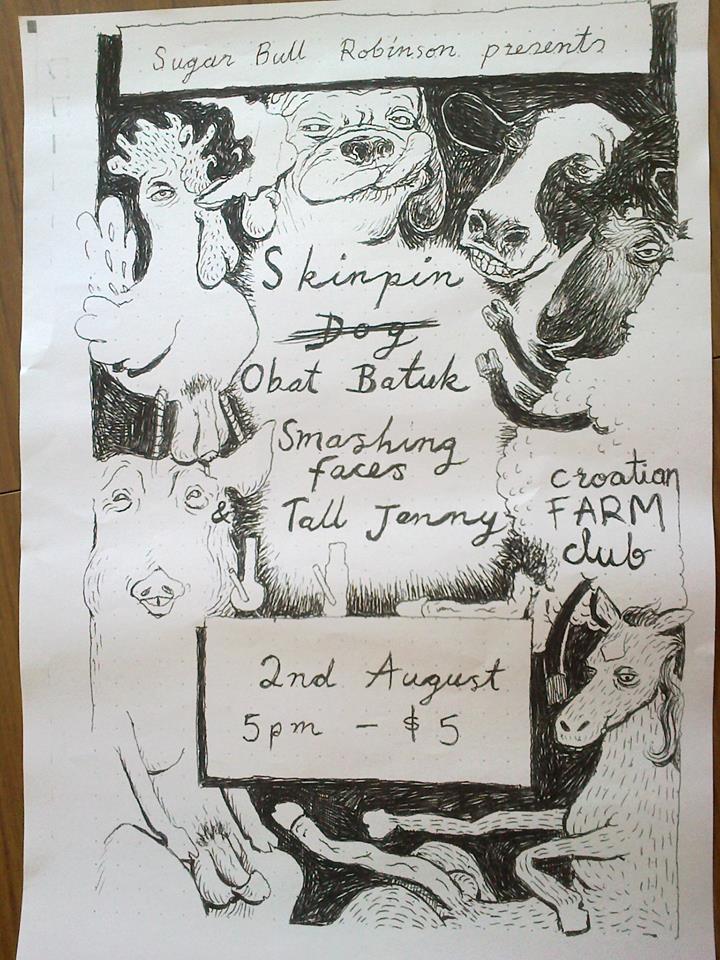 Sugar Bull Robinson presents
Skinpin
Dog
Obat Batuk
Smashing
faces
& Tall Jenny
croatian
FARM
club
2nd August
5pm - $5